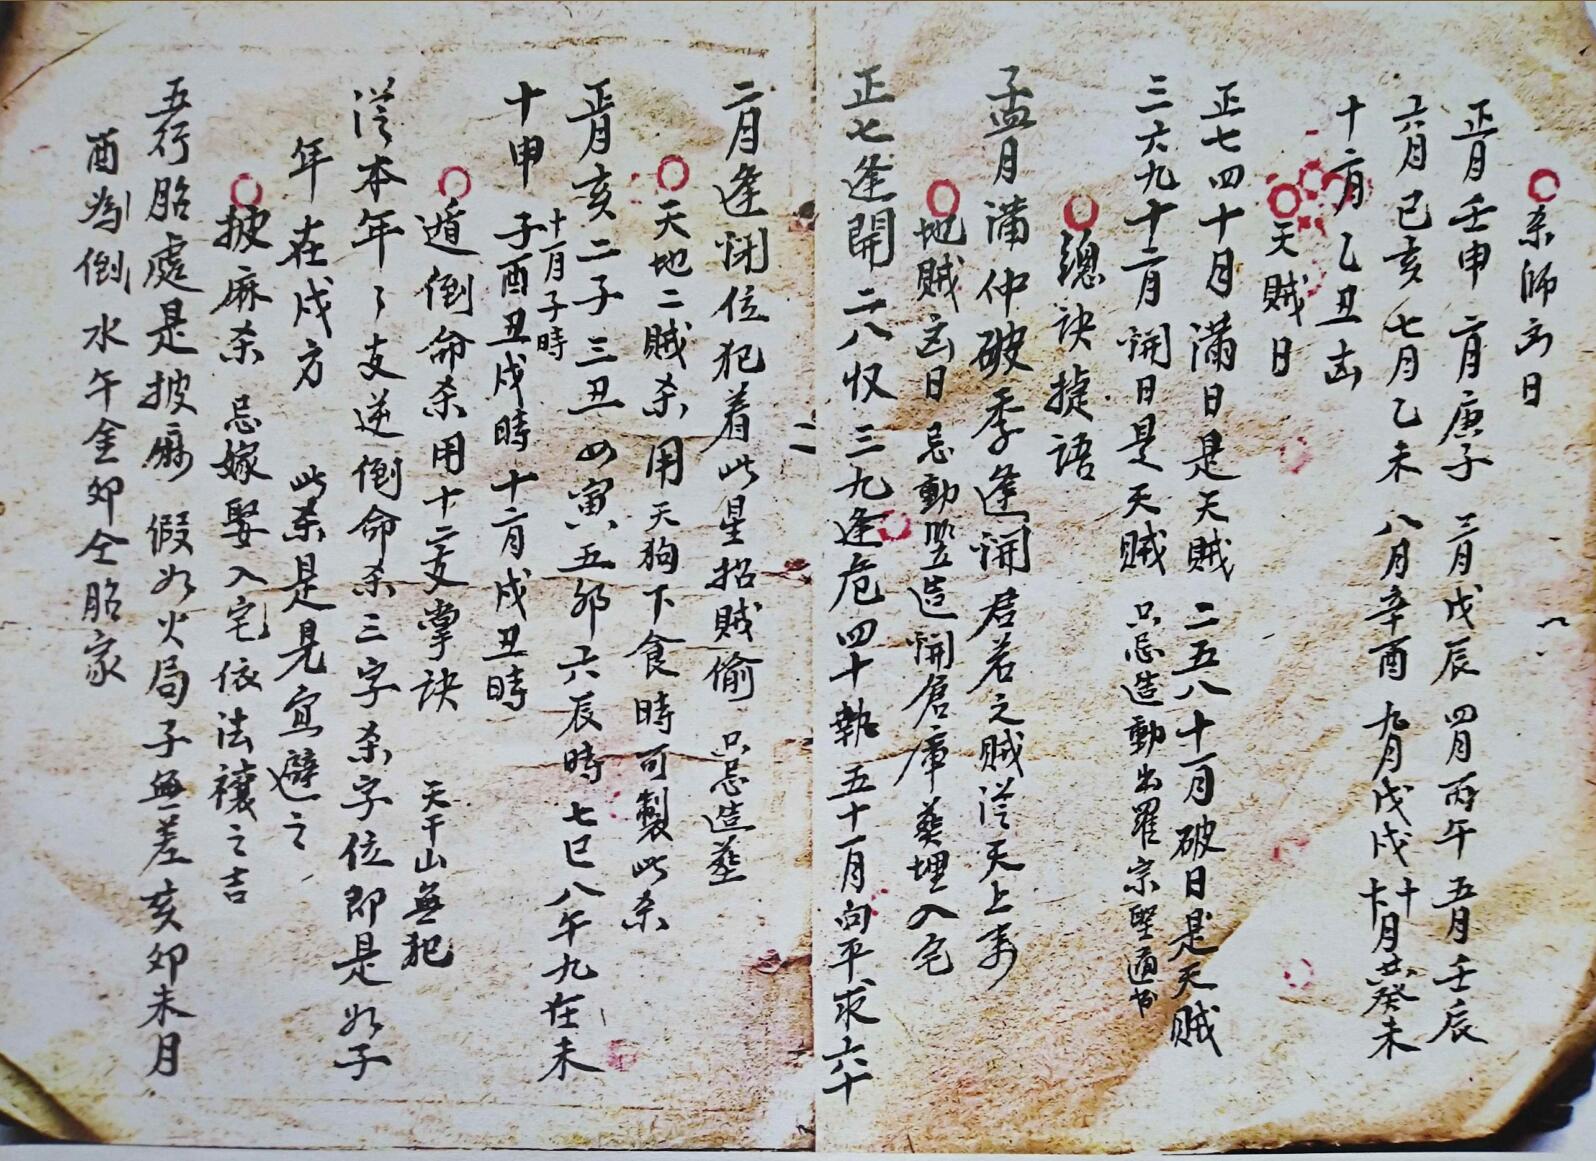 杀師凶日
正月壬申 二月庚子 三月戊辰 四月丙午 五月壬辰
六月己亥 七月乙未 八月辛酉 九月戊戌 十月 十一月癸未
十二月乙丑凶
天賊日
正七四十月滿日是天賊 二五八十一月破日是天賊
三六九十二月開日是天賊 只忌造動出羅宗聖通书
總訣捷語
孟月滿仲破季逢開 君若之賊從天上來
地賊凶日 忌動竪造開倉庫葬埋入宅
正七逢開二八収三九逢危四十執五十一月向平求六十
二月逢閉位犯着此星招賊偷 只忌造葬
天地二賊杀 用天狗下食時可製此杀
正月亥二子三丑四寅五卯六辰時七巳八午九在未
十申 十一月子時
子酉丑戌時十二月戌丑時
遁倒命杀用十二支掌訣 天干山無犯
從本年々支逆倒命杀三字杀字位即是如子
年在戌方 此杀是是宜避之
披麻杀 忌嫁娶入宅依法禳之吉
五行胎處是披麻 假如火局子無差亥卯未月
酉為倒水午金卯仝胎家